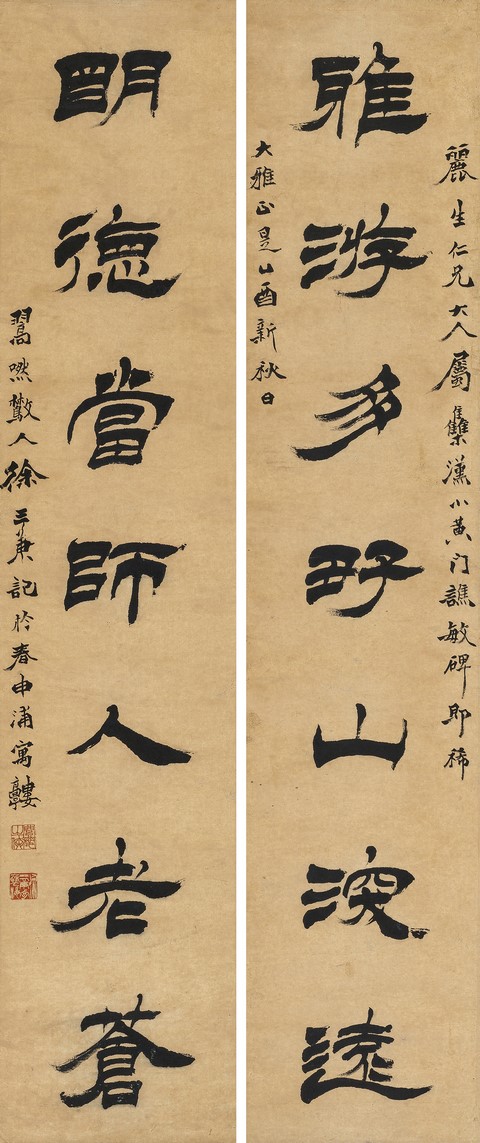 雅游多好山深遠
麗生仁兄大人屬集漢小黃门譙敏碑即希
大雅正是乙酉新秋日
明德當師人老蒼
翯嘫散人徐三庚記於春申浦寓